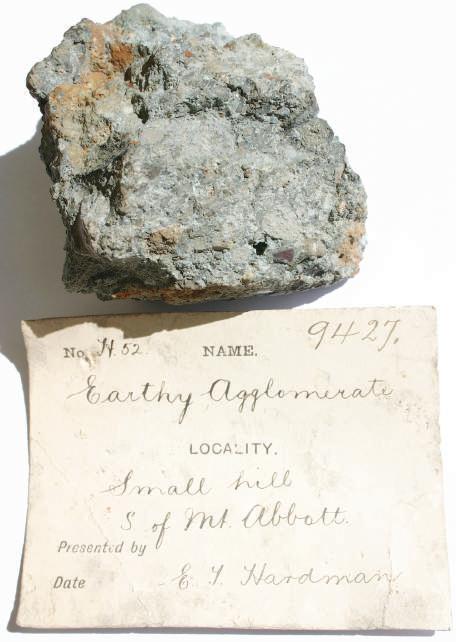 No. H. 52 NAME. 9427.
Earthy Agglomerate
LOCALITY.
Small hill
S of Mt. Abbott.
Presented by
Date E T Hardman